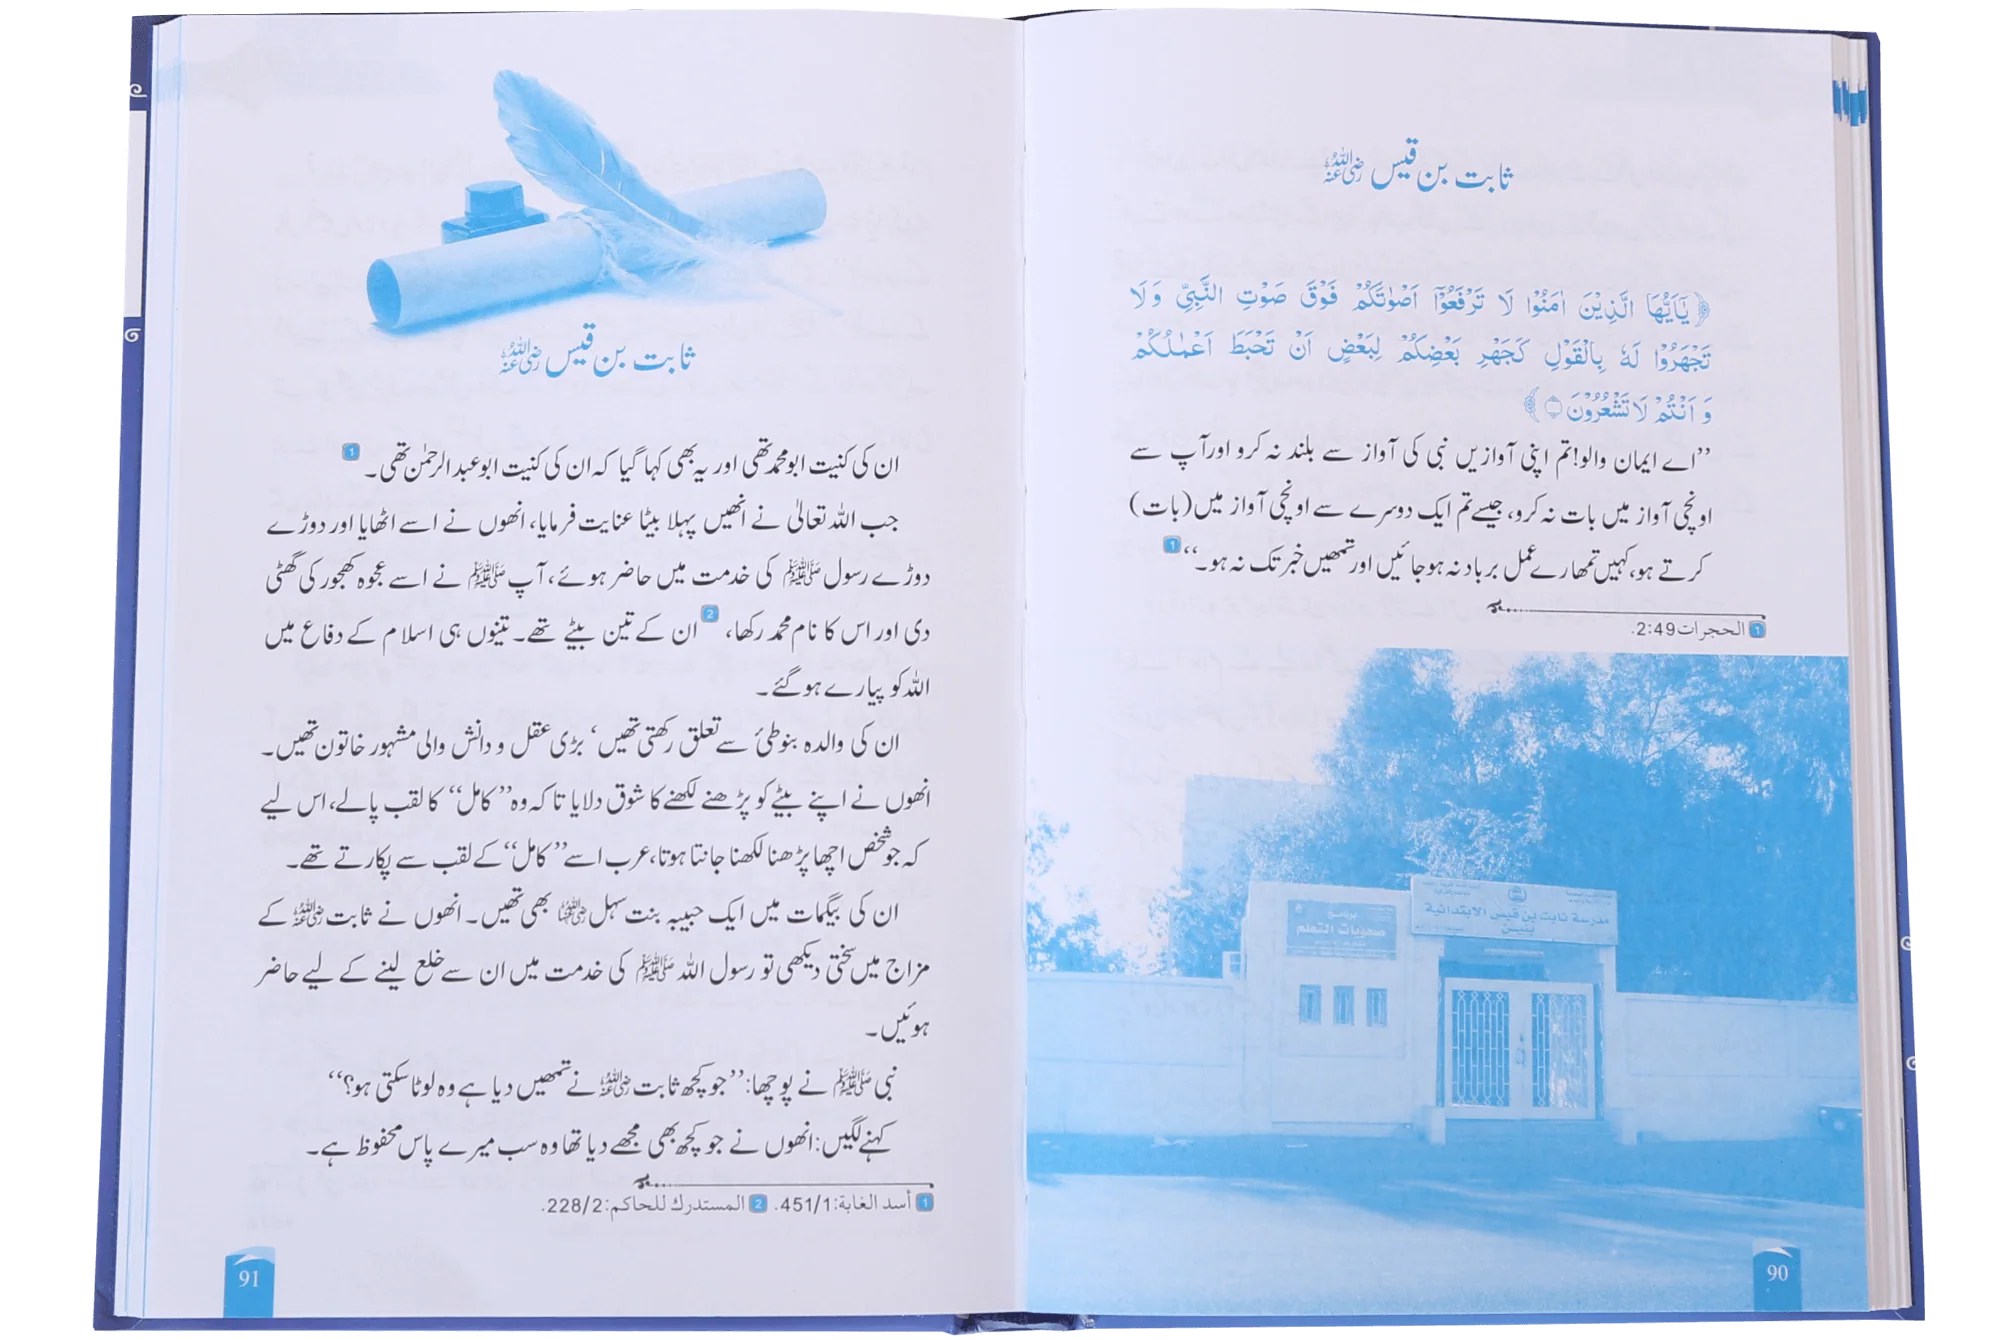 ثابت بن قیس رضی اللہ عنہ
﴿یٰۤاَیُّهَا الَّذِیْنَ اٰمَنُوْا لَا تَرْفَعُوْۤا اَصْوٰتَكُمْ فَوْقَ صَوْتِ النَّبِیِّ وَ لَا
تَجْهَرُوْا لَهٗ بِالْقَوْلِ كَجَهْرِ بَعْضِكُمْ لِبَعْضٍ اَنْ تَحْبَطَ اَعْمٰلُكُمْ
وَ اَنْتُمْ لَا تَشْعُرُوْنَ﴾
’’اے ایمان والو! تم اپنی آوازیں نبی کی آواز سے بلند نہ کرو اور آپ سے
اونچی آواز میں بات نہ کرو، جیسے تم ایک دوسرے سے اونچی آواز میں (بات)
کرتے ہو، کہیں تمھارے عمل برباد نہ ہو جائیں اور تمھیں خبر تک نہ ہو۔‘‘ 1
1 الحجرات 2:49.
برنامج
صعوبات التعلم
مدرسة ثابت بن قيس الابتدائية
بنين
90
ثابت بن قیس رضی اللہ عنہ
ان کی کنیت ابو محمد تھی اور یہ بھی کہا گیا کہ ان کی کنیت ابو عبد الرحمٰن تھی۔ 1
جب اللہ تعالیٰ نے انھیں پہلا بیٹا عنایت فرمایا، انھوں نے اسے اٹھایا اور دوڑے
دوڑے رسول ﷺ کی خدمت میں حاضر ہوئے، آپ ﷺ نے اسے عجوہ کھجور کی گھٹی
دی اور اس کا نام محمد رکھا، 2 ان کے تین بیٹے تھے۔ تینوں ہی اسلام کے دفاع میں
اللہ کو پیارے ہو گئے۔
ان کی والدہ بنو طیٔ سے تعلق رکھتی تھیں‘ بڑی عقل و دانش والی مشہور خاتون تھیں۔
انھوں نے اپنے بیٹے کو پڑھنے لکھنے کا شوق دلایا تا کہ وہ ’’کامل‘‘ کا لقب پا لے، اس لیے
کہ جو شخص اچھا پڑھنا لکھنا جانتا ہوتا، عرب اسے ’’کامل‘‘ کے لقب سے پکارتے تھے۔
ان کی بیگمات میں ایک حبیبہ بنت سہل رضی اللہ عنہا بھی تھیں۔ انھوں نے ثابت رضی اللہ عنہ کے
مزاج میں سختی دیکھی تو رسول اللہ ﷺ کی خدمت میں ان سے خلع لینے کے لیے حاضر
ہوئیں۔
نبی ﷺ نے پوچھا: ’’جو کچھ ثابت رضی اللہ عنہ نے تمھیں دیا ہے وہ لوٹا سکتی ہو؟‘‘
کہنے لگیں: انھوں نے جو کچھ بھی مجھے دیا تھا وہ سب میرے پاس محفوظ ہے۔
1 أسد الغابة: 451/1. 2 المستدرك للحاكم: 228/2.
91